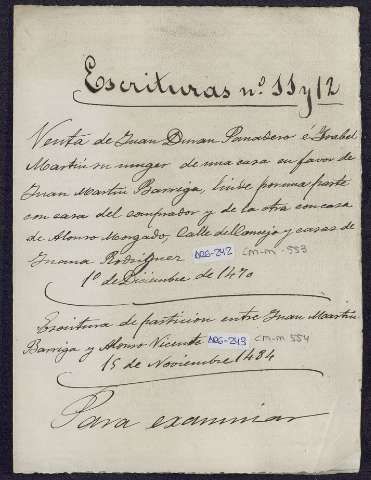 Escrituras nº. 11 y 12
Venta de Juan Duran Panadero é Ysabel
Martin su muger de una casa en favor de
Juan Martin Barriga, linde por una parte
con casa del comprador y de la otra con casa
de Alonso Morgado, Calle del Concejo y casas de
Juana Rodriguez ARG-242 CM-M-553
1º de Diciembre de 1470
Escritura de particion entre Juan Martin
Barriga y Alonso Vicente ARG-243 CM-M 554
15 de Noviembre 1484
Para examinar